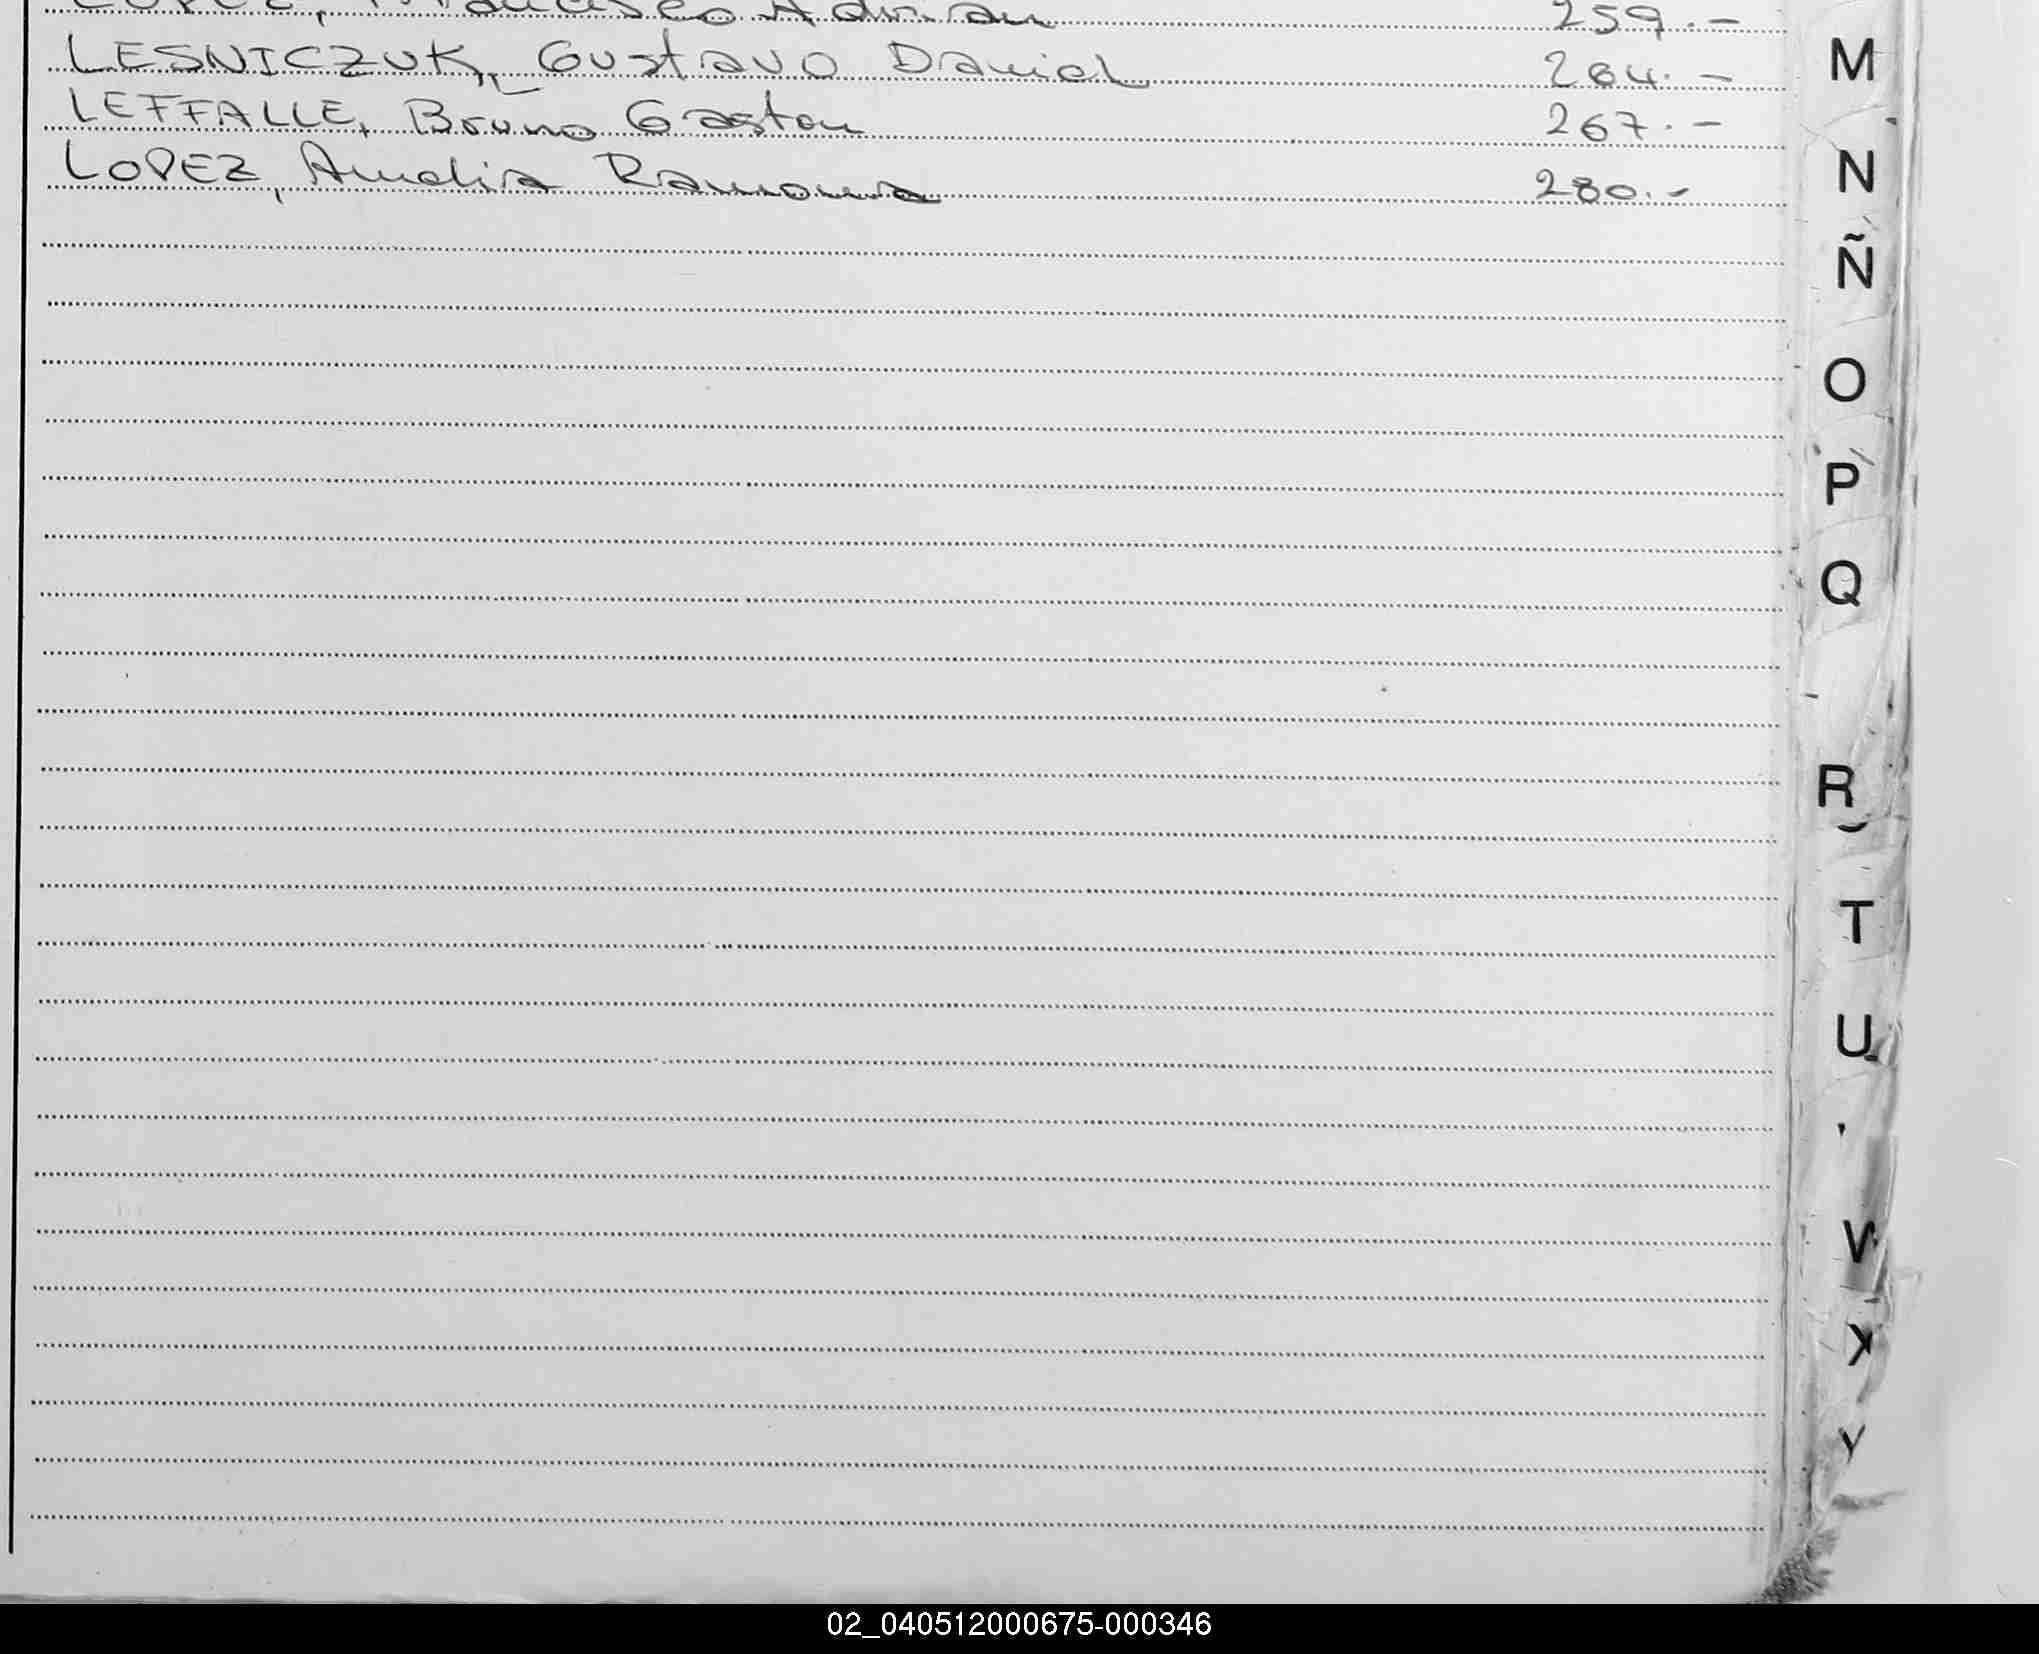 LOPEZ, Francisco Adrian 259.-
LESNICZUK, Gustavo Daniel 264.-
LEFFALLE, Bruno Gaston 267.-
LOPEZ, Amelia Ramona 280.-
M
N
Ñ
O
P
Q
R
T
U
X
Y
02_040512000675-000346